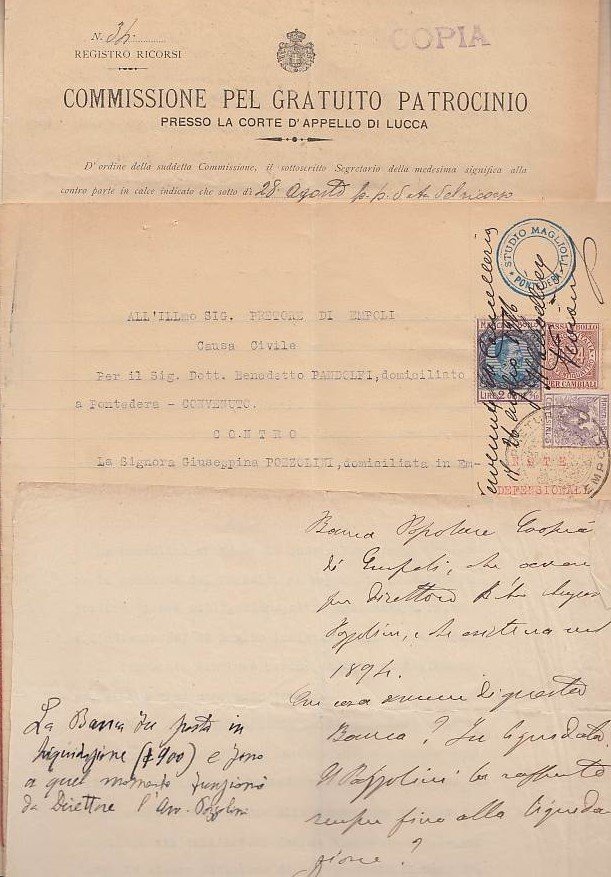 N. 34
COPIA
REGISTRO RICORSI
COMMISSIONE PEL GRATUITO PATROCINIO
PRESSO LA CORTE D'APPELLO DI LUCCA
D'ordine della suddetta Commissione, il sottoscritto Segretario della medesima significa alla
contro parte in calce indicato che sotto dì 28 Agosto p. p. del ricorso
STUDIO MAGLIOLI
PONTEDERA
ALL'ILLmo SIG. PRETORE DI EMPOLI
Causa Civile
Per il Sig. Dott. Benedetto PANDOLFI, domiciliato
a Pontedera - CONVENUTO.
CONTRO
La Signora Giuseppina POZZOLINI, domiciliata in Em-
LIRE 2
PER CAMBIALI
CENTESIMI
DEFENSIONALI
EMPOLI
Banca Popolare Coop.
di Empoli, che aveva
per direttore
Pozzolini, che esisteva nel
1894.
Che cosa avvenne di questa
Banca? Fu liquidata
Il Pozzolini la
sempre fino alla liquida
zione?
La Banca fu posta in
liquidazione (1900) e fino
a quel momento funzionò
da Direttore l'Avv. Pozzolini